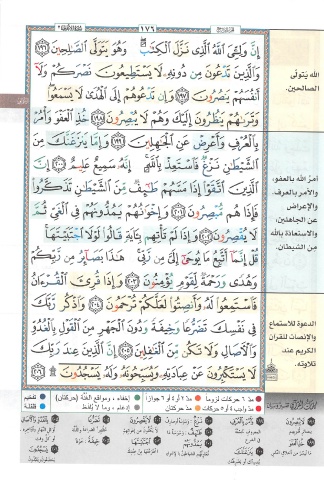 ١٧٦
إِنَّ وَلِـِّۧيَ ٱللَّهُ ٱلَّذِي نَزَّلَ ٱلۡكِتَٰبَۖ وَهُوَ يَتَوَلَّى ٱلصَّٰلِحِينَ ١٩٦
وَٱلَّذِينَ تَدۡعُونَ مِن دُونِهِۦ لَا يَسۡتَطِيعُونَ نَصۡرَكُمۡ وَلَآ
أَنفُسَهُمۡ يَنصُرُونَ ١٩٧ وَإِن تَدۡعُوهُمۡ إِلَى ٱلۡهُدَىٰ لَا يَسۡمَعُواْۖ
وَتَرَىٰهُمۡ يَنظُرُونَ إِلَيۡكَ وَهُمۡ لَا يُبۡصِرُونَ ١٩٨ خُذِ ٱلۡعَفۡوَ وَأۡمُرۡ
بِٱلۡعُرۡفِ وَأَعۡرِضۡ عَنِ ٱلۡجَٰهِلِينَ ١٩٩ وَإِمَّا يَنزَغَنَّكَ مِنَ
ٱلشَّيۡطَٰنِ نَزۡغٞ فَٱسۡتَعِذۡ بِٱللَّهِۚ إِنَّهُۥ سَمِيعٌ عَلِيمٌ ٢٠٠ إِنَّ
ٱلَّذِينَ ٱتَّقَوۡاْ إِذَا مَسَّهُمۡ طَٰٓئِفٞ مِّنَ ٱلشَّيۡطَٰنِ تَذَكَّرُواْ
فَإِذَا هُم مُّبۡصِرُونَ ٢٠١ وَإِخۡوَٰنُهُمۡ يَمُدُّونَهُمۡ فِي ٱلۡغَيِّ ثُمَّ
لَا يُقۡصِرُونَ ٢٠٢ وَإِذَا لَمۡ تَأۡتِهِم بِـَٔايَةٖ قَالُواْ لَوۡلَا ٱجۡتَبَيۡتَهَاۚ
قُلۡ إِنَّمَآ أَتَّبِعُ مَا يُوحَىٰٓ إِلَيَّ مِن رَّبِّيۚ هَٰذَا بَصَآئِرُ مِن رَّبِّكُمۡ
وَهُدٗى وَرَحۡمَةٞ لِّقَوۡمٖ يُؤۡمِنُونَ ٢٠٣ وَإِذَا قُرِئَ ٱلۡقُرۡءَانُ
فَٱسۡتَمِعُواْ لَهُۥ وَأَنصِتُواْ لَعَلَّكُمۡ تُرۡحَمُونَ ٢٠٤ وَٱذۡكُر رَّبَّكَ
فِي نَفۡسِكَ تَضَرُّعٗا وَخِيفَةٗ وَدُونَ ٱلۡجَهۡرِ مِنَ ٱلۡقَوۡلِ بِٱلۡغُدُوِّ
وَٱلۡأٓصَالِ وَلَا تَكُن مِّنَ ٱلۡغَٰفِلِينَ ٢٠٥ إِنَّ ٱلَّذِينَ عِندَ رَبِّكَ
لَا يَسۡتَكۡبِرُونَ عَنۡ عِبَادَتِهِۦ وَيُسَبِّحُونَهُۥ وَلَهُۥ يَسۡجُدُونَۤ ٢٠٦
الله يَتولّى
الصالحين.
أمرُ الله بالعفو،
والأمر بالعرف،
والإعراض
عن الجاهلين،
والاستعاذة بالله
من الشيطان.
الدعوة للاستماع
والإنصات للقرآن
الكريم عند
تلاوته.
مدّ ٦ حركات لزوماً
مدّ ٢ أو ٤ أو ٦ جوازاً
إخفاء، ومواقع الغُنَّة (حركتان)
تفخيم
مدّ واجب ٤ أو ٥ حركات
مدّ حركتان
إدغام، وما لا يُلفَظ
قلقلة